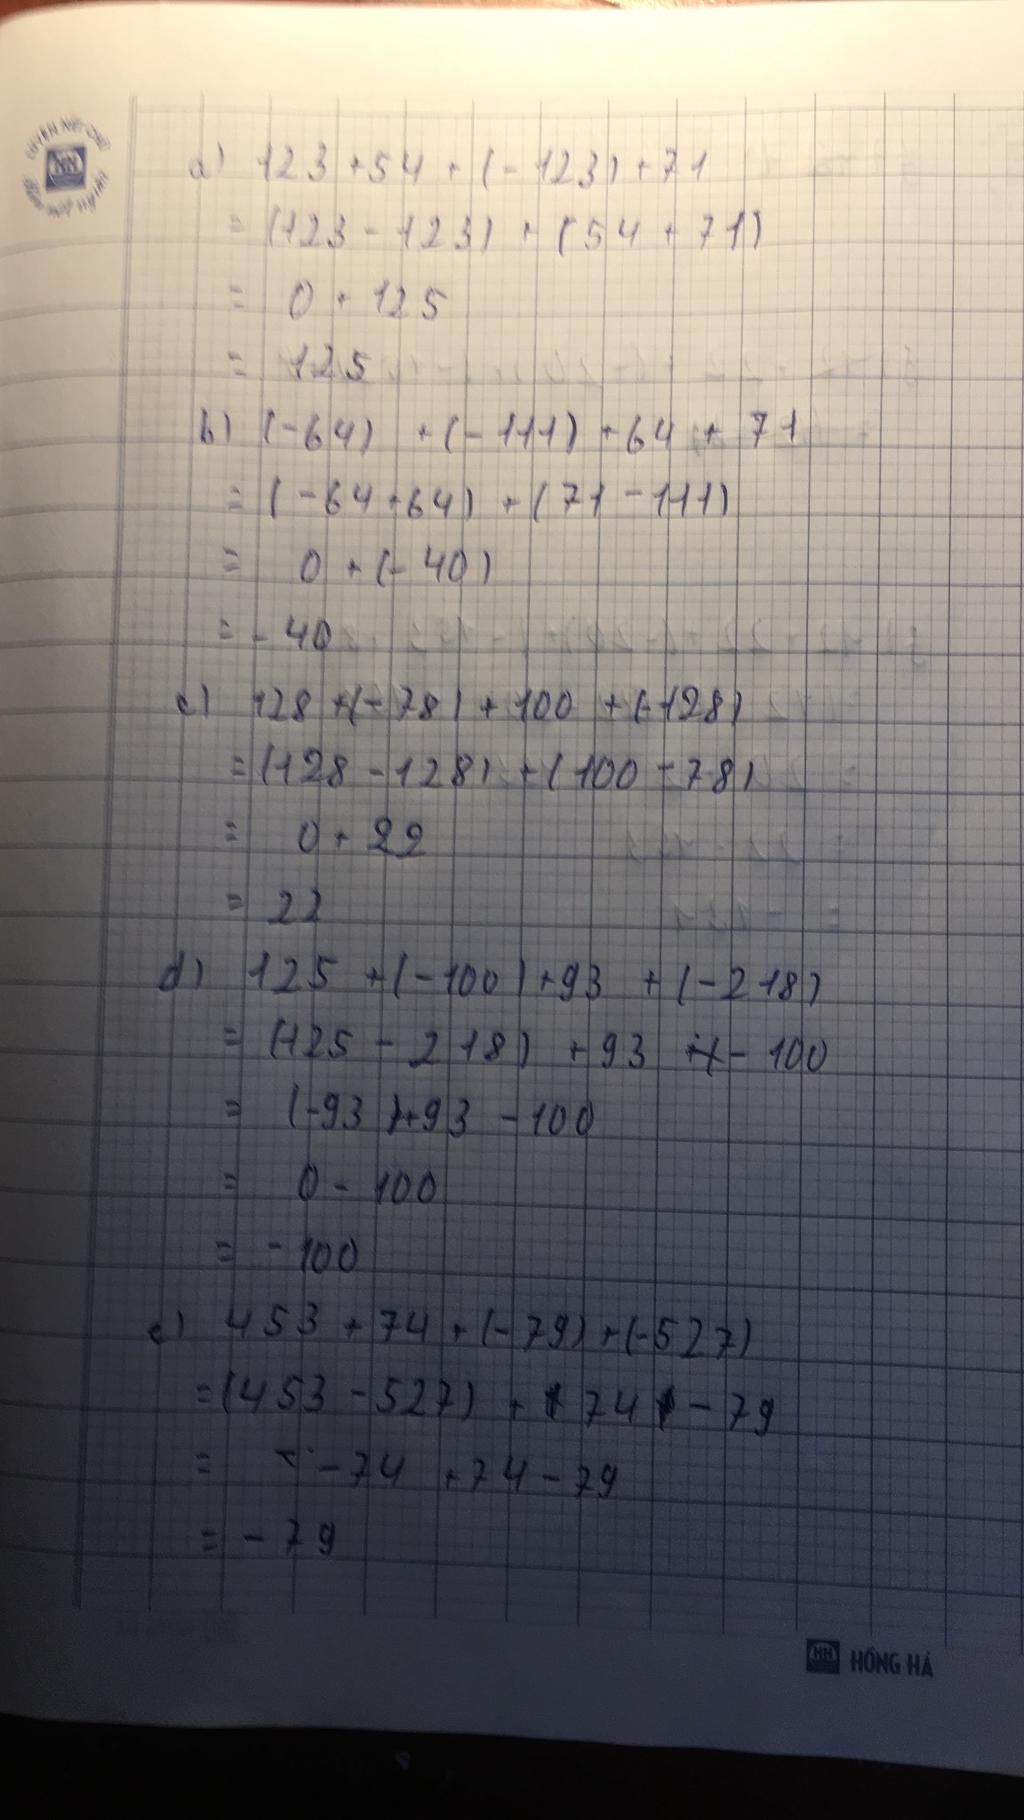 a) 123 + 54 + (-123) + 71
= (123 - 123) + (54 + 71)
= 0 + 125
= 125
b) (-64) + (-111) + 64 + 71
= (-64 + 64) + (71 - 111)
= 0 + (-40)
= -40
c) 128 + (-78) + 100 + (-128)
= (128 - 128) + (100 - 78)
= 0 + 22
= 22
d) 125 + (-100) + 93 + (-218)
= (125 - 218) + 93 - 100
= (-93) + 93 - 100
= 0 - 100
= -100
e) 453 + 74 + (-79) + (-527)
= (453 - 527) + 74 - 79
= -74 + 74 - 79
= -79
HH HỒNG HÀ